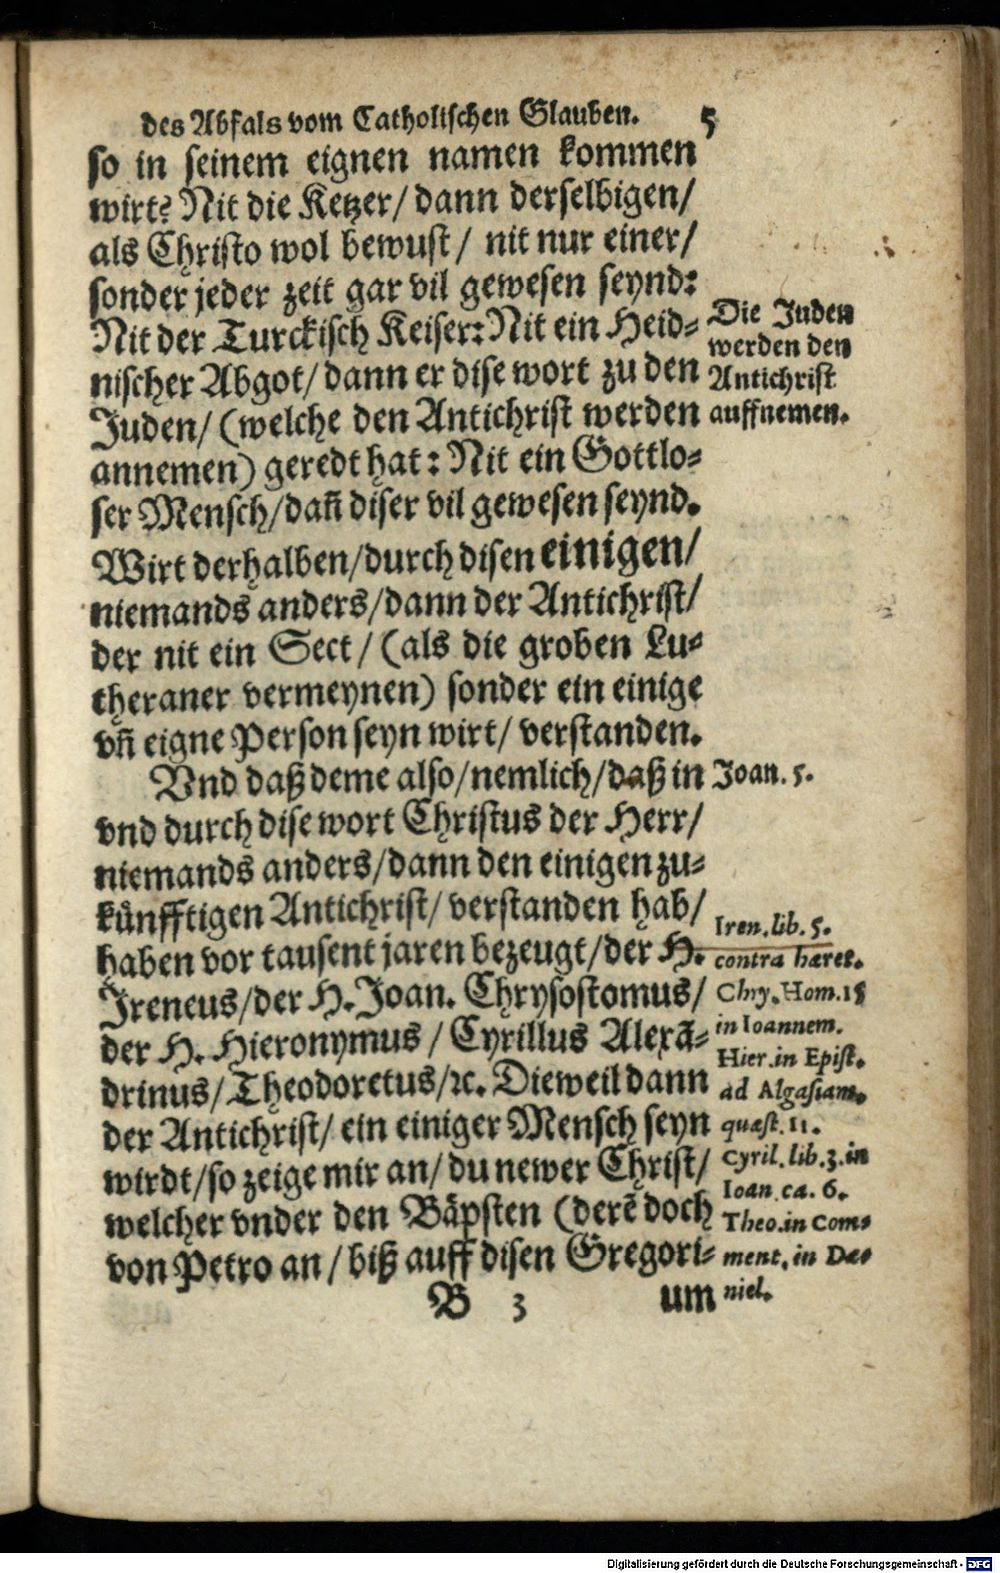 des Abfals vom Catholischen Glauben. 5
so in seinem eignen namen kommen
wirt? Nit die Ketzer/ dann derselbigen/
als Christo wol bewust/ nit nur einer/
sonder jeder zeit gar vil gewesen seynd:
Nit der Turckisch Keiser: Nit ein Heid-
nischer Abgot/ dann er dise wort zu den
Juden/ (welche den Antichrist werden
annemen) geredt hat: Nit ein Gottlo-
ser Mensch/ dañ diser vil gewesen seynd.
Wirt derhalben/ durch disen einigen/
niemands anders/ dann der Antichrist/
der nit ein Sect/ (als die groben Lu-
theraner vermeynen) sonder ein einige
vñ eigne Person seyn wirt/ verstanden.
Vnd daß deme also/ nemlich/ daß in
vnd durch dise wort Christus der Herr/
niemands anders/ dann den einigen zu-
kuͤnfftigen Antichrist/ verstanden hab/
haben vor tausent jaren bezeugt/ der H.
Jreneus/ der H. Joan. Chrysostomus/
der H. Hieronymus/ Cyrillus Alexã-
drinus/ Theodoretus/ ꝛc. Dieweil dann
der Antichrist/ ein einiger Mensch seyn
wirdt/ so zeige mir an/ du newer Christ/
welcher vnder den Baͤpsten (derẽ doch
von Petro an/ biß auff disen Gregori-
B 3 um
Die Juden
werden den
Antichrist
auffnemen.
Joan. 5.
Iren. lib. 5.
contra hæres.
Chry. Hom. 15
in Ioannem.
Hier. in Epist.
ad Algasiam.
quæst. 11.
Cyril. lib. 3. in
Ioan. ca. 6.
Theo. in Com-
ment. in Da-
niel.
Digitalisierung gefördert durch die Deutsche Forschungsgemeinschaft - DFG